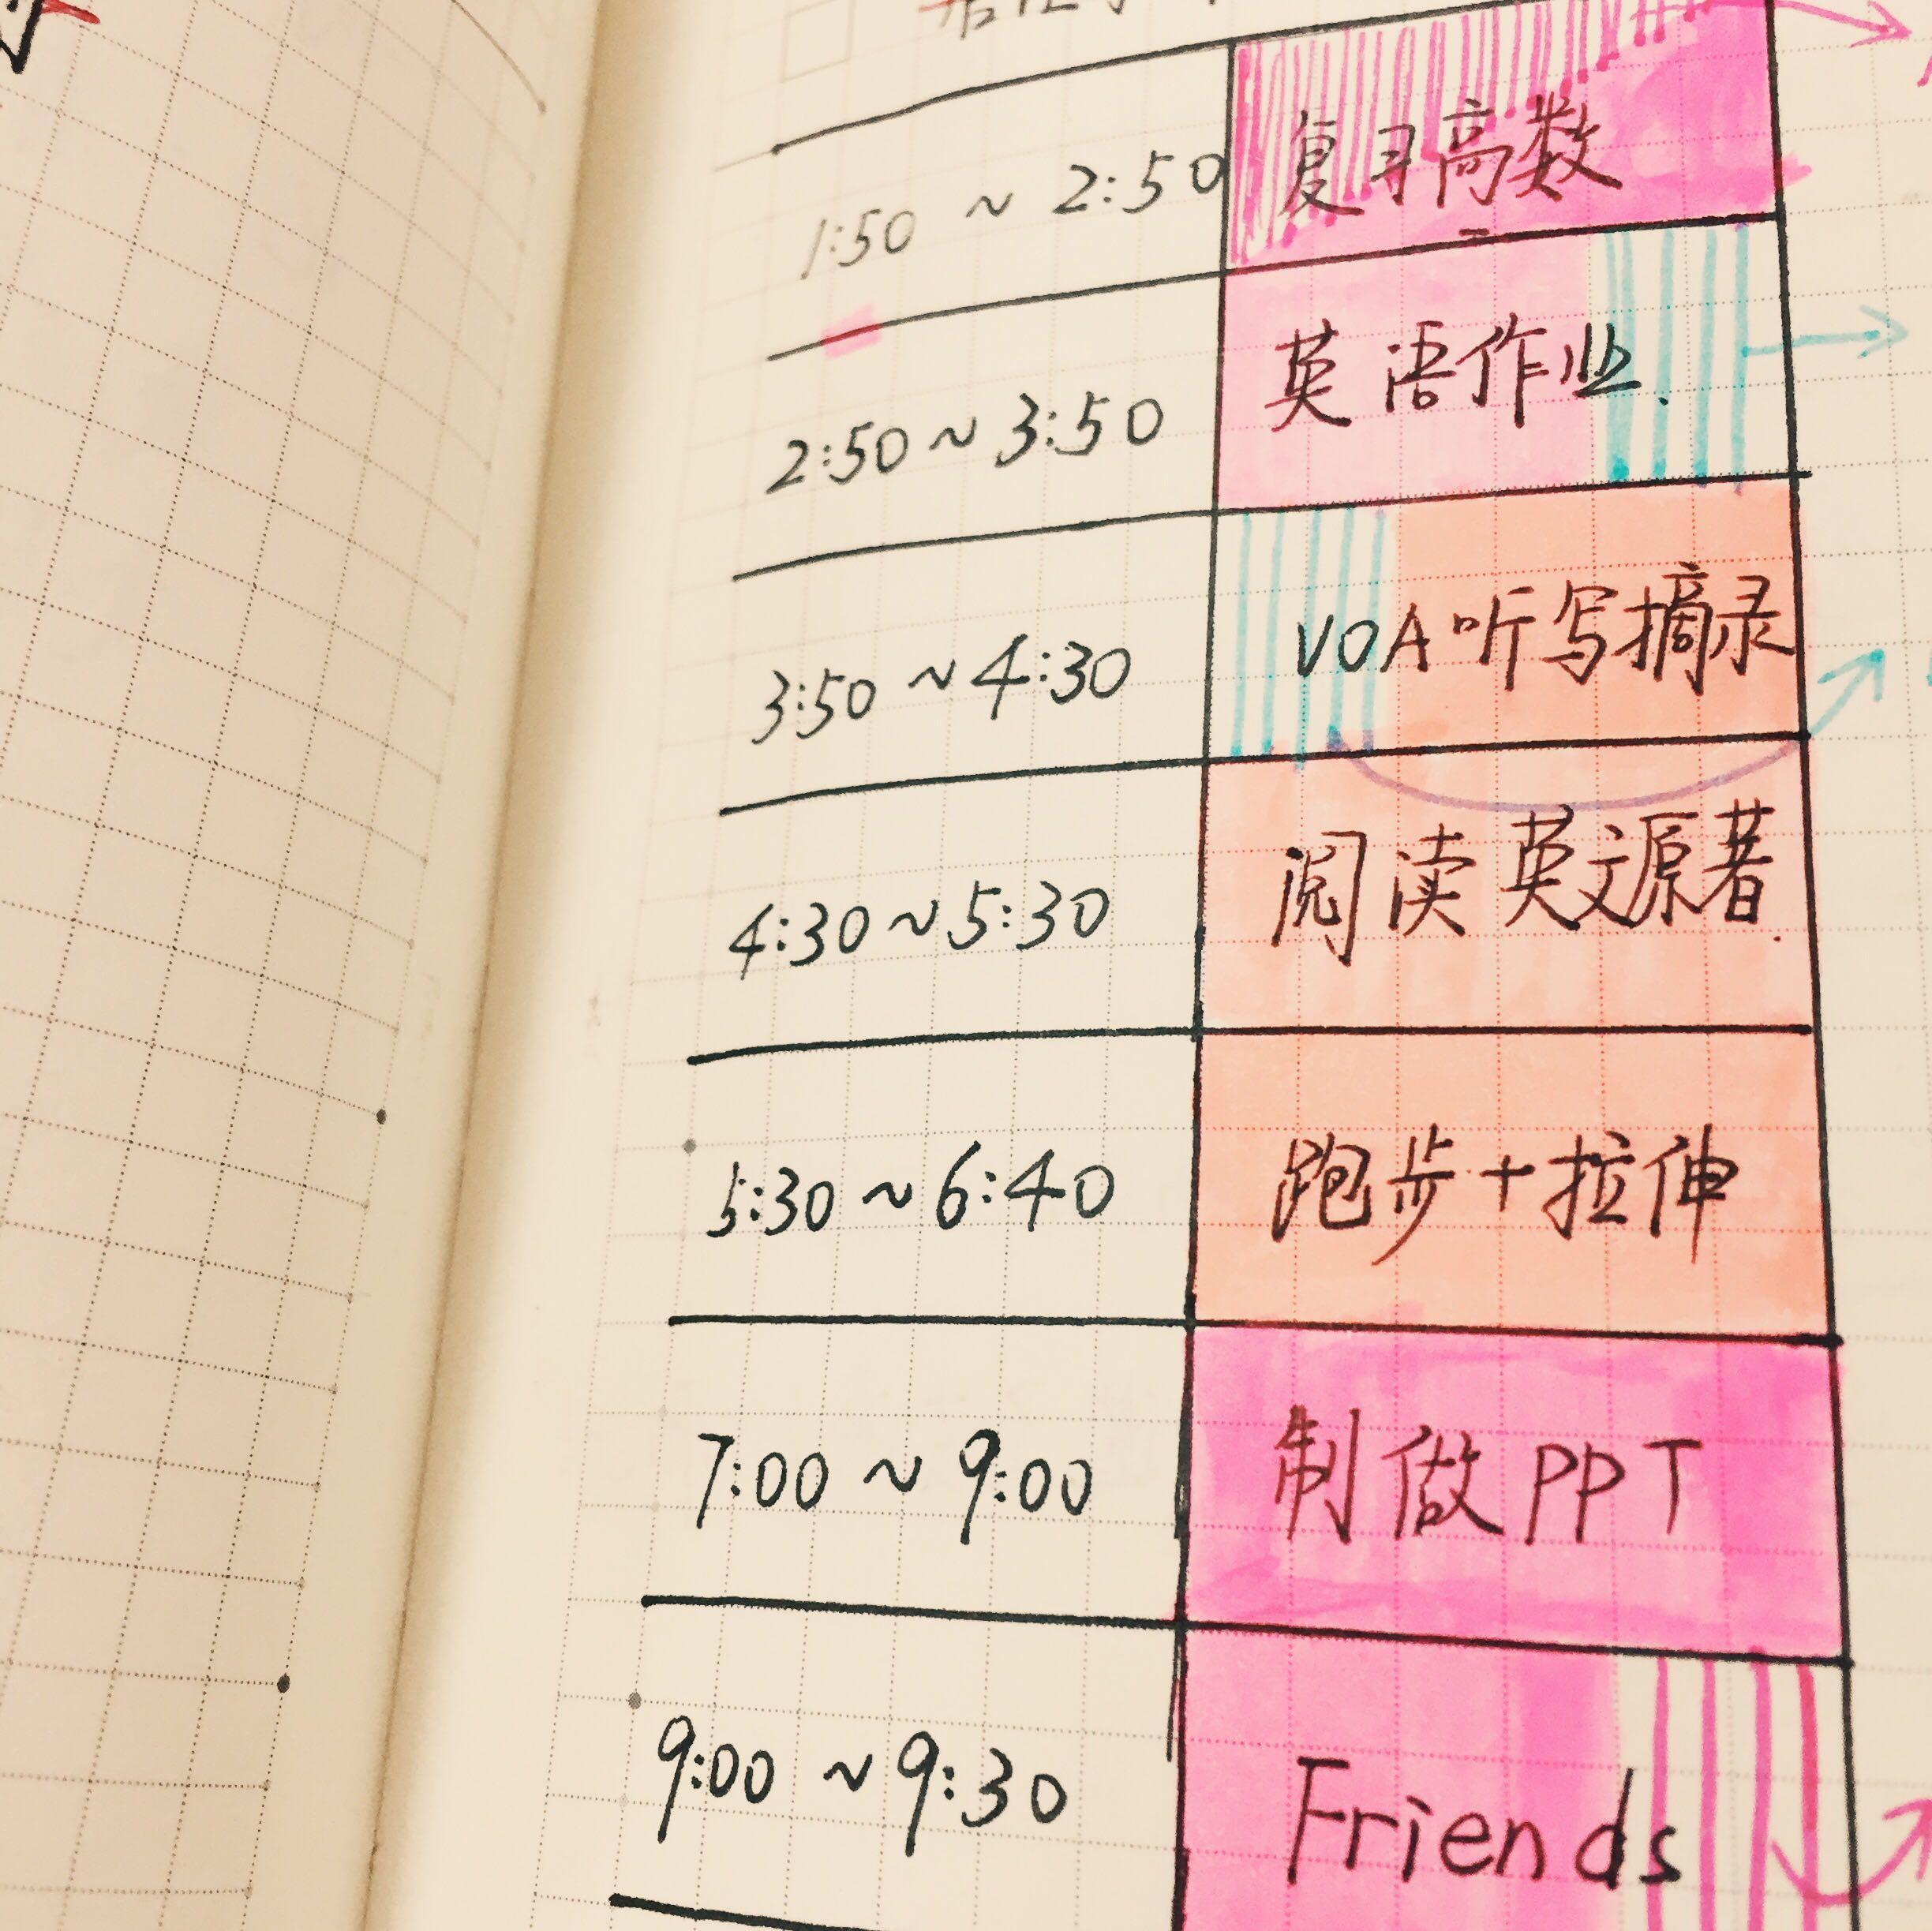 1:50 ~ 2:50 复习高数
2:50 ~ 3:50 英语作业.
3:50 ~ 4:30 VOA听写摘录
4:30 ~ 5:30 阅读英文源著.
5:30 ~ 6:40 跑步+拉伸
7:00 ~ 9:00 制做PPT
9:00 ~ 9:30 Friends